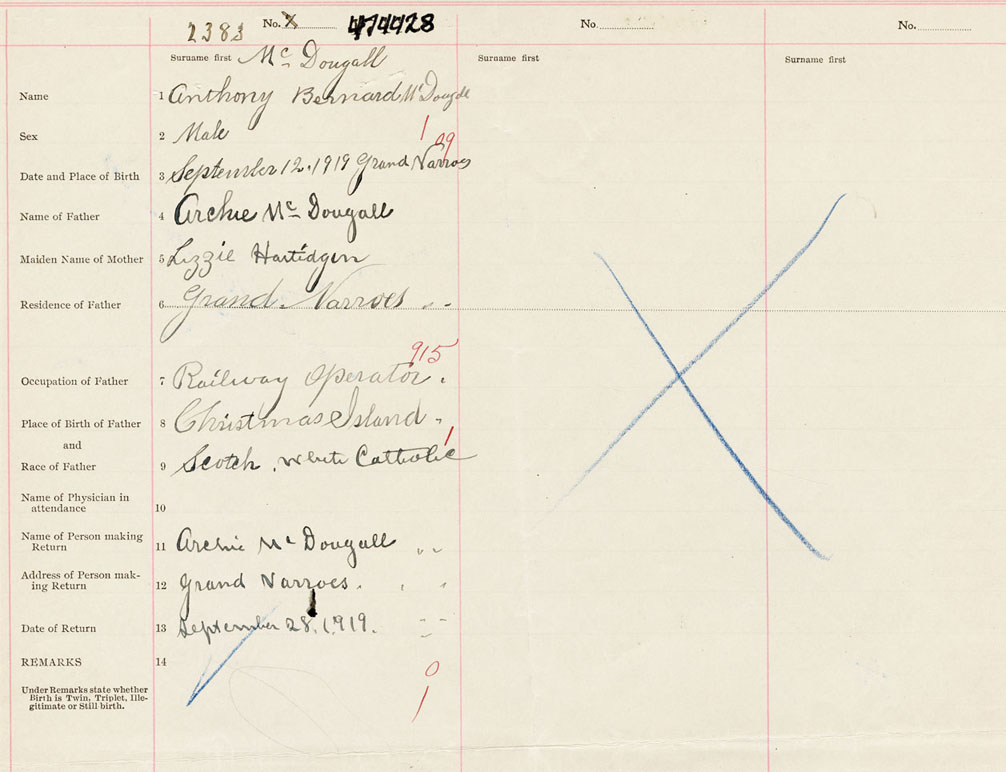 2383 No. X 474428 No. No.
Surname first Mc Dougall Surname first Surname first
Name 1 Anthony Bernard McDougall
1
Sex 2 Male
09
Date and Place of Birth 3 September 12. 1919 Grand Narroes
Name of Father 4 Archie Mc Dougall
Maiden Name of Mother 5 Lizzie
Residence of Father 6 Grand Narroes " "
915
Occupation of Father 7 Railway Operator.
Place of Birth of Father 8 Christmas Island "
and
1
Race of Father 9 Scotch, White Catholic
Name of Physician in
attendance 10
Name of Person making
Return 11 Archie Mc Dougall " "
Address of Person mak-
ing Return 12 Grand Narroes. " "
Date of Return 13 September 28. 1919. " "
REMARKS 14
0
Under Remarks state whether
Birth is Twin, Triplet, Ille-
gitimate or Still birth.
1